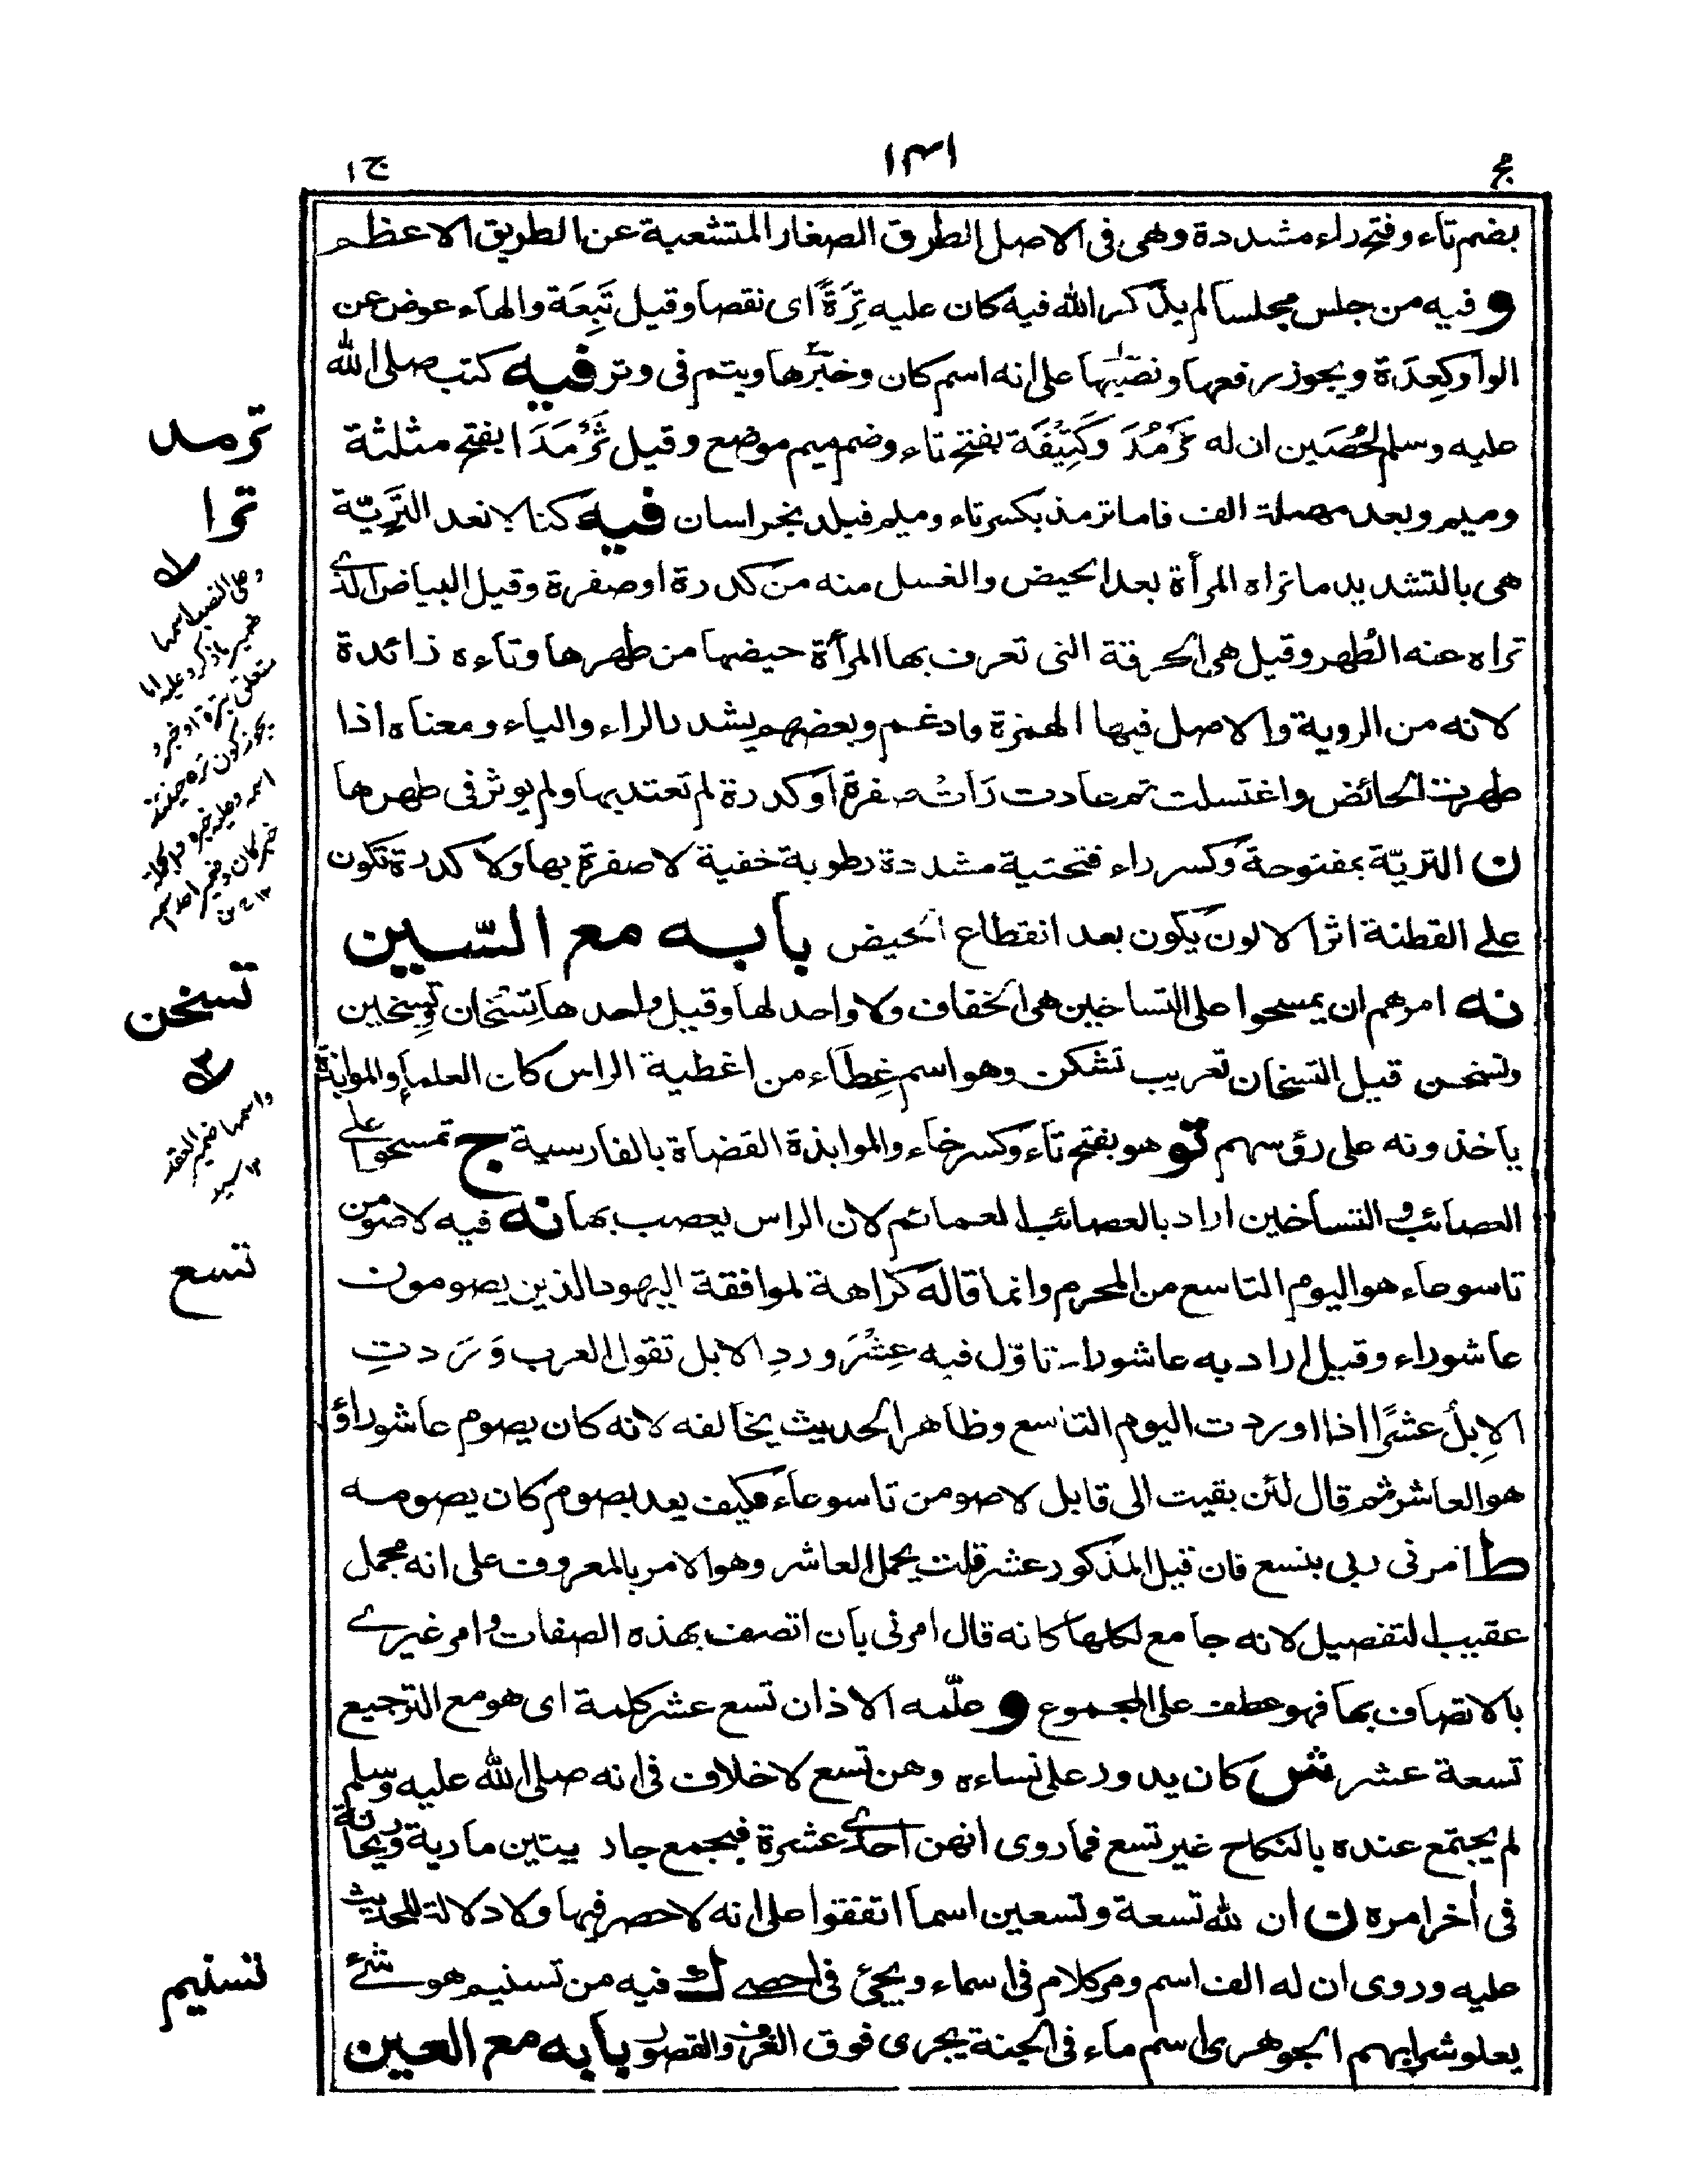 مج
١٣١
ج ١
بضم تاء وفتح راء مشددة وهى فى الاصل الطرق الصغار المتشعبة عن الطريق الاعظم
و فيه من جلس مجلسا لم يذكر الله فيه كان عليه تِرَةً اى نقصا وقيل تَبِعَة والهاء عوض عن
الواو كعِدَة ويجوز رفعها ونصبها على انه اسم كان وخبرها ويتم فى وتر فيه كتب صلى الله
عليه وسلم لحُصَين ان له تَرْمُدَ وكَتِيْفَة بفتح تاء وضم ميم موضع وقيل ثَرْمَدَا بفتح مثلثة
وميم وبعد مهملة الف فاما ترمذ بكسر تاء وميم فبلد بخراسان فيه كنا لا نعد التَرِيّة
هى بالتشديد ما تراه المرأة بعد الحيض والغسل منه من كدرة او صفرة وقيل البياض الذى
تراه عند الطُهر وقيل هى الخرقة التى تعرف بها المرأة حيضها من طهرها وتاءه زائدة
لانه من الروية والاصل فيها الهمزة وادغم وبعضهم يشدد الراء والياء ومعناه اذا
طهرت الحائض واغتسلت ثم عادت رَاَتْ صفرة او كدرة لم تعتد بها ولم يوثر فى طهرها
ن التريّة بمفتوحة وكسر راء فتحتية مشددة رطوبة خفية لا صفرة بها ولا كدرة تكون
على القطنة اثرا لا لون يكون بعد انقطاع الحيض بابه مع السّين
نه امرهم ان يمسحوا على التساخين هى الخفاف ولا واحد لها وقيل واحدها تِسْخان وتِسخين
وتسخن قيل التسخان تعريب تشكن وهو اسم غِطاء من اغطية الراس كان العلماء والموابذة
ياخذونه على رؤسهم تو هو بفتح تاء وكسر خاء والموابذة القضاة بالفارسية ج تمسحوا على
العصائب والتساخين اراد بالعصائب العمائم لان الراس يعصب بها نه فيه لاصومن
تاسوعاء هو اليوم التاسع من المحرم وانما قاله كراهة لموافقة اليهود الذين يصومون
عاشوراء وقيل اراد به عاشوراء تاوّل فيه عِشْرَ ورد الابل تقول العرب وَرَدتِ
الابلُ عشرًا اذا اوردت اليوم التاسع وظاهر الحديث يخالفه لانه كان يصوم عاشوراؤ
هو العاشر ثم قال لئن بقيت الى قابل لاصومن تاسوعاء فكيف يعد بصوم كان يصومه
ط امرنى ربى بتسع فان قيل المذكور عشر قلت يحمل العاشر وهو الامر بالمعروف على انه مجمل
عقيب التفصيل لانه جامع لكلها كانه قال امرنى بان اتصف بهذه الصفات وامر غيرى
بالاتصاف بها فهو عطف على المجموع و علّمه الاذان تسع عشر كلمة اى هو مع الترجيع
تسعة عشر ش كان يدور على نساءه وهن تسع لا خلاف فى انه صلى الله عليه وسلم
لم يجتمع عنده بالنكاح غير تسع فما روى انهن احدى عشرة فبجمع جاريتين مارية وريحانة
فى اخر امره ن ان لله تسعة وتسعين اسما اتفقوا على انه لا حصر فيها ولا دلالة للحديث
عليه وروى ان له الف اسم ومر كلام فى اسماء ويجئ فى احصے ك فيه من تسنيم هو شئ
يعلو شرابهم الجوهرى اسم ماء فى الجنة يجرى فوق الغرف والقصور بابه مع العين
ترمد
ترا
وعلى النصب اسمها
ضمير ما ذكر وعليه اما
متعلق بترة او خبر و
يجوز كون ترة حينئذ
اسمه وعليه خبره والجملة
خبر كان وضمير احد اسمه
تسخن
واسمها ضمير القعد
١٢ سيد
تسع
تسنيم